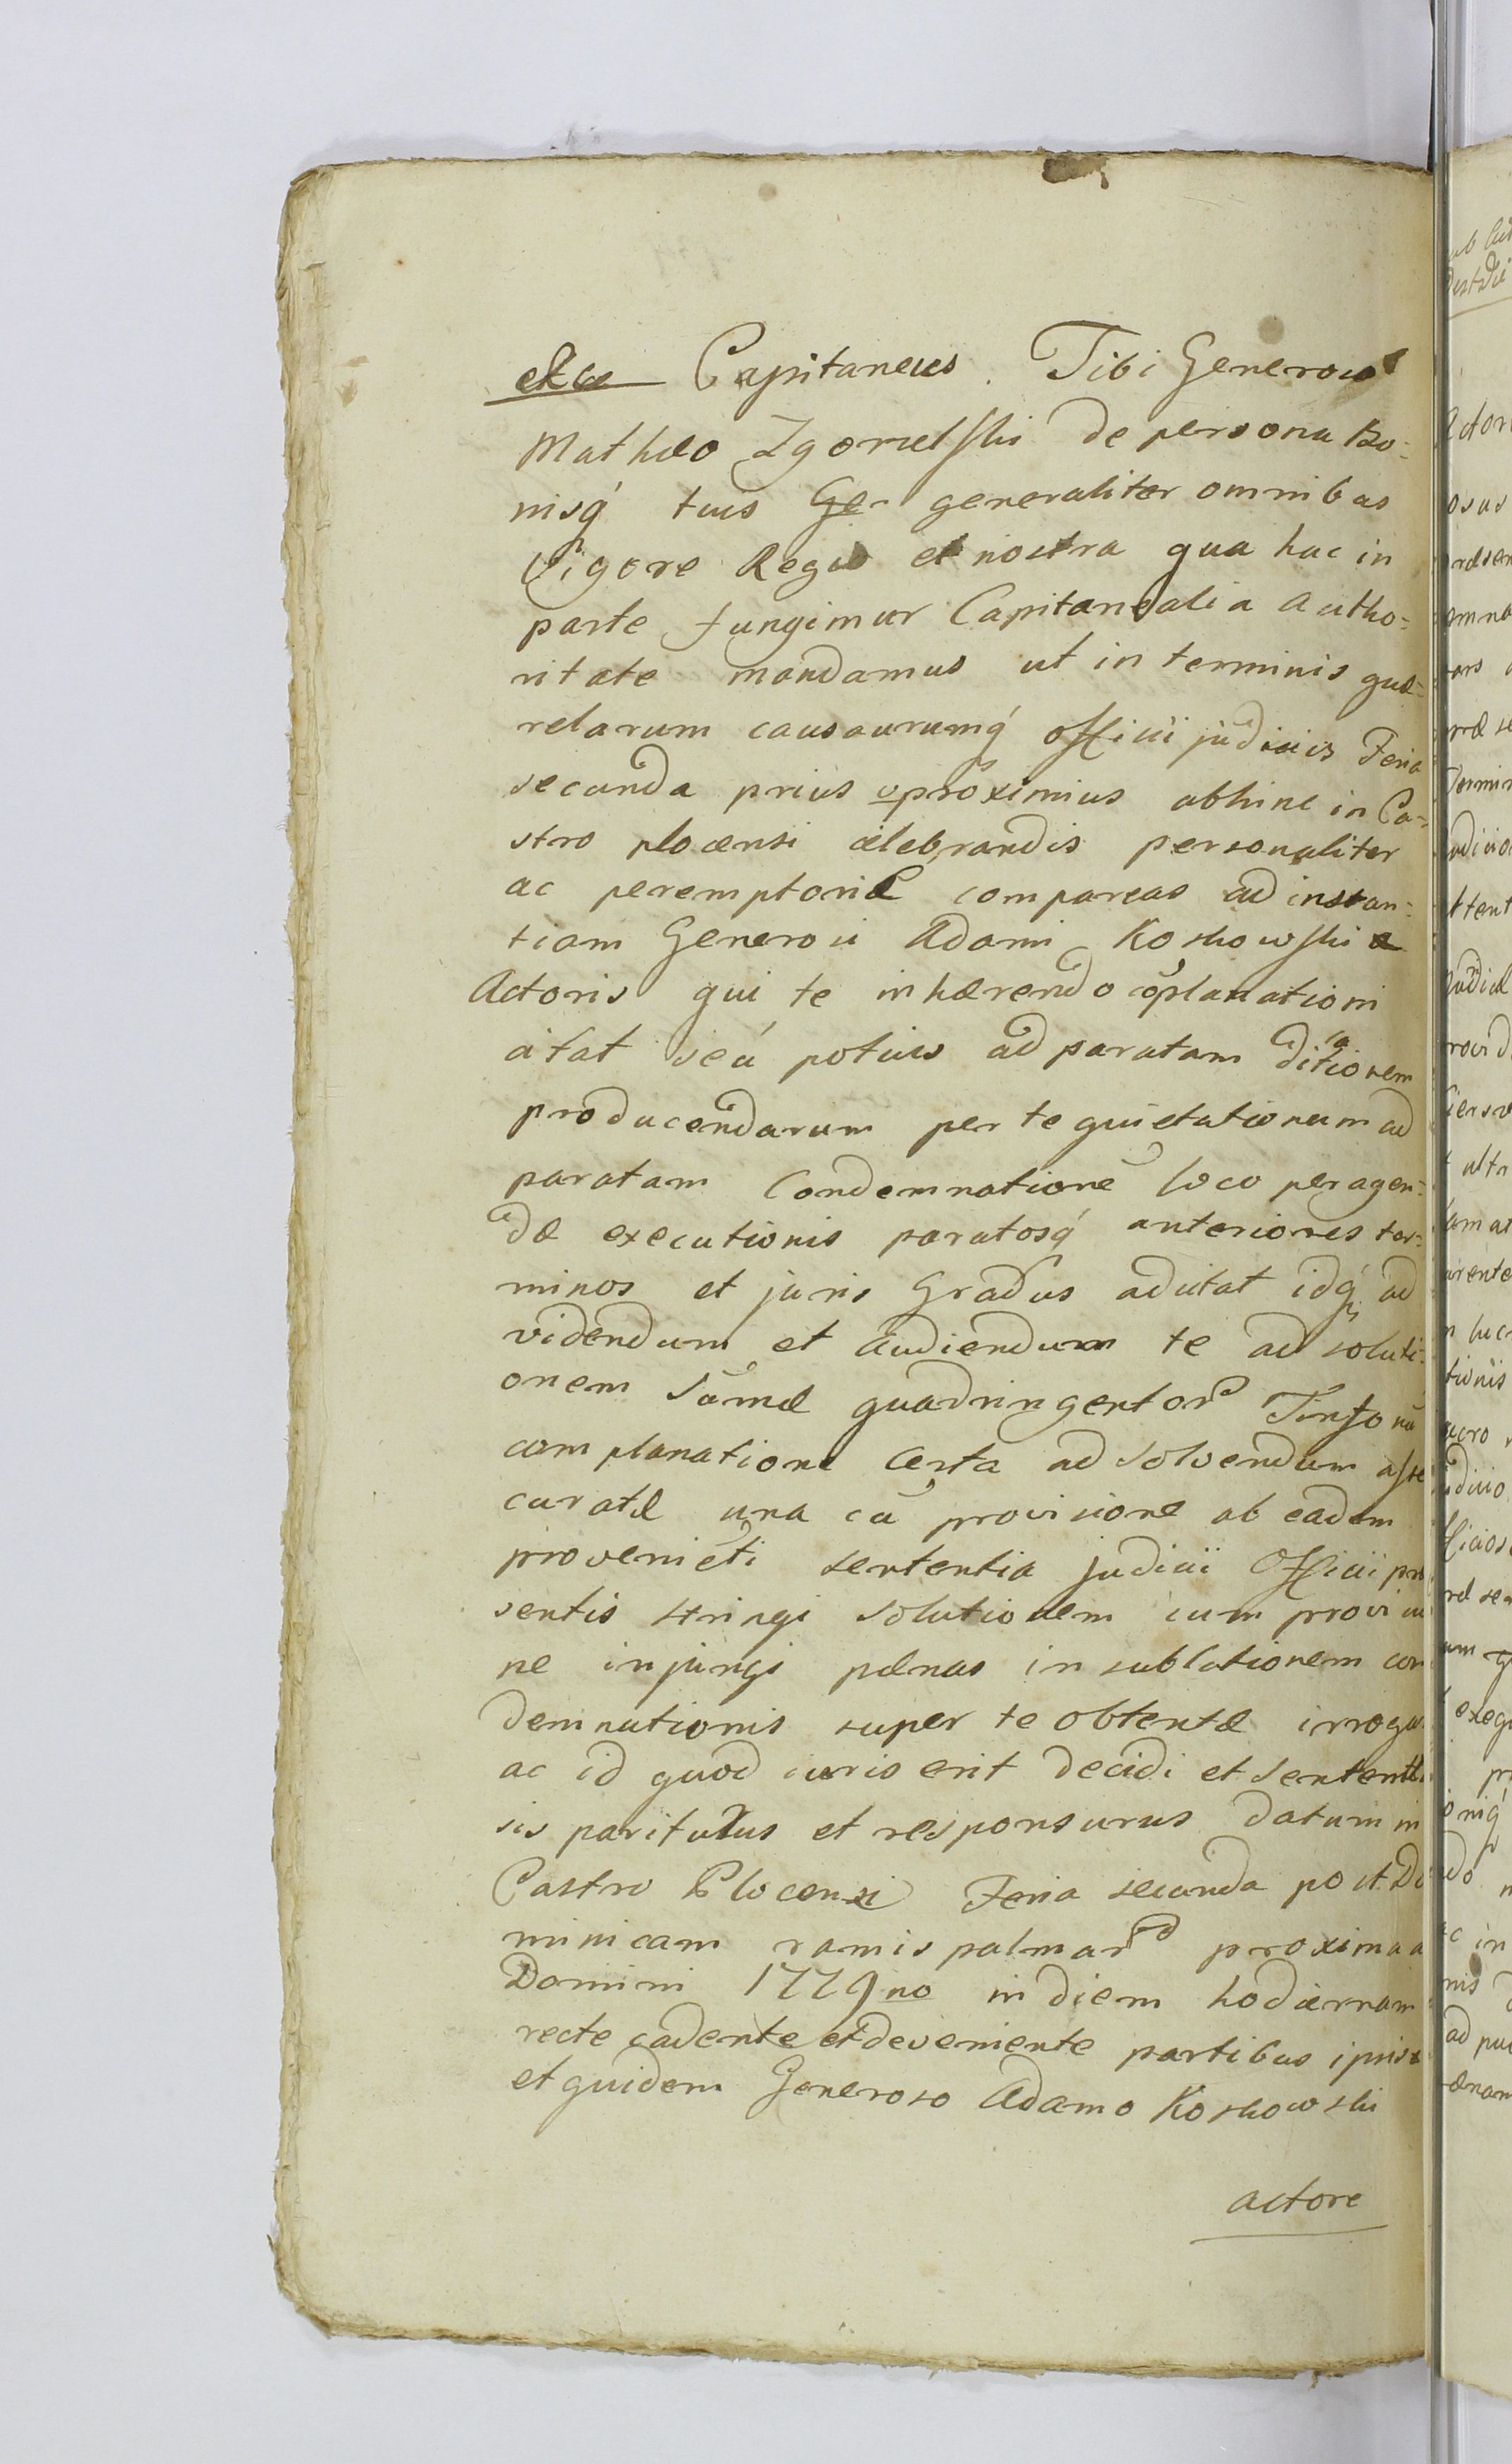 etca Capitaneus. Tibi Generoso
Mathæo Zgorzelski de persona Bo-
nisq́ tuis Ge- generaliter omnibus
Vigore Regia et nostra qua hac in
parte fungimur Capitaneali a Autho-
ritate mandamus ut in terminis quæ-
relarum causarumq́ officii judiciis Feria
secunda prius proximius abhinc in Ca-
stro plocensi celebrandis personaliter
ac peremptoriæ compareas ad instan-
tiam Generosi Adami Koskowski
Actoris qui te inhærendo cõplanationi
citat seú potius ad paratam ditionem
producendarum per te quietationum ad
paratam Condemnationẽ loco peragen-
dæ executionis paratosq́ anteriores ter-
minos et juris Gradus adcitat idq́ ad
videndum et audiendum te ad soluti-
onem sũmæ quadringentor Tinfonũ
complanatione certa ad solvendum asse
curatæ una cũ provisione ab eadem
proveniẽti sententia judicii Officii præ
sentis stringi solutionem cum provisio
ne injungi pænas in sublationem con
demnationis super te obtentæ irrogar
ac id quod iuris erit decidi et sententi
sis pariturus et responsurus datum in
Castro Plocensi Feria secunda post Do
minicam ramispalmar proxima a
Domini 1779no in diem hodiernam
recte cadente et deveniente partibus ipsis
et quidem Generoso Adamo Koskowski
actore